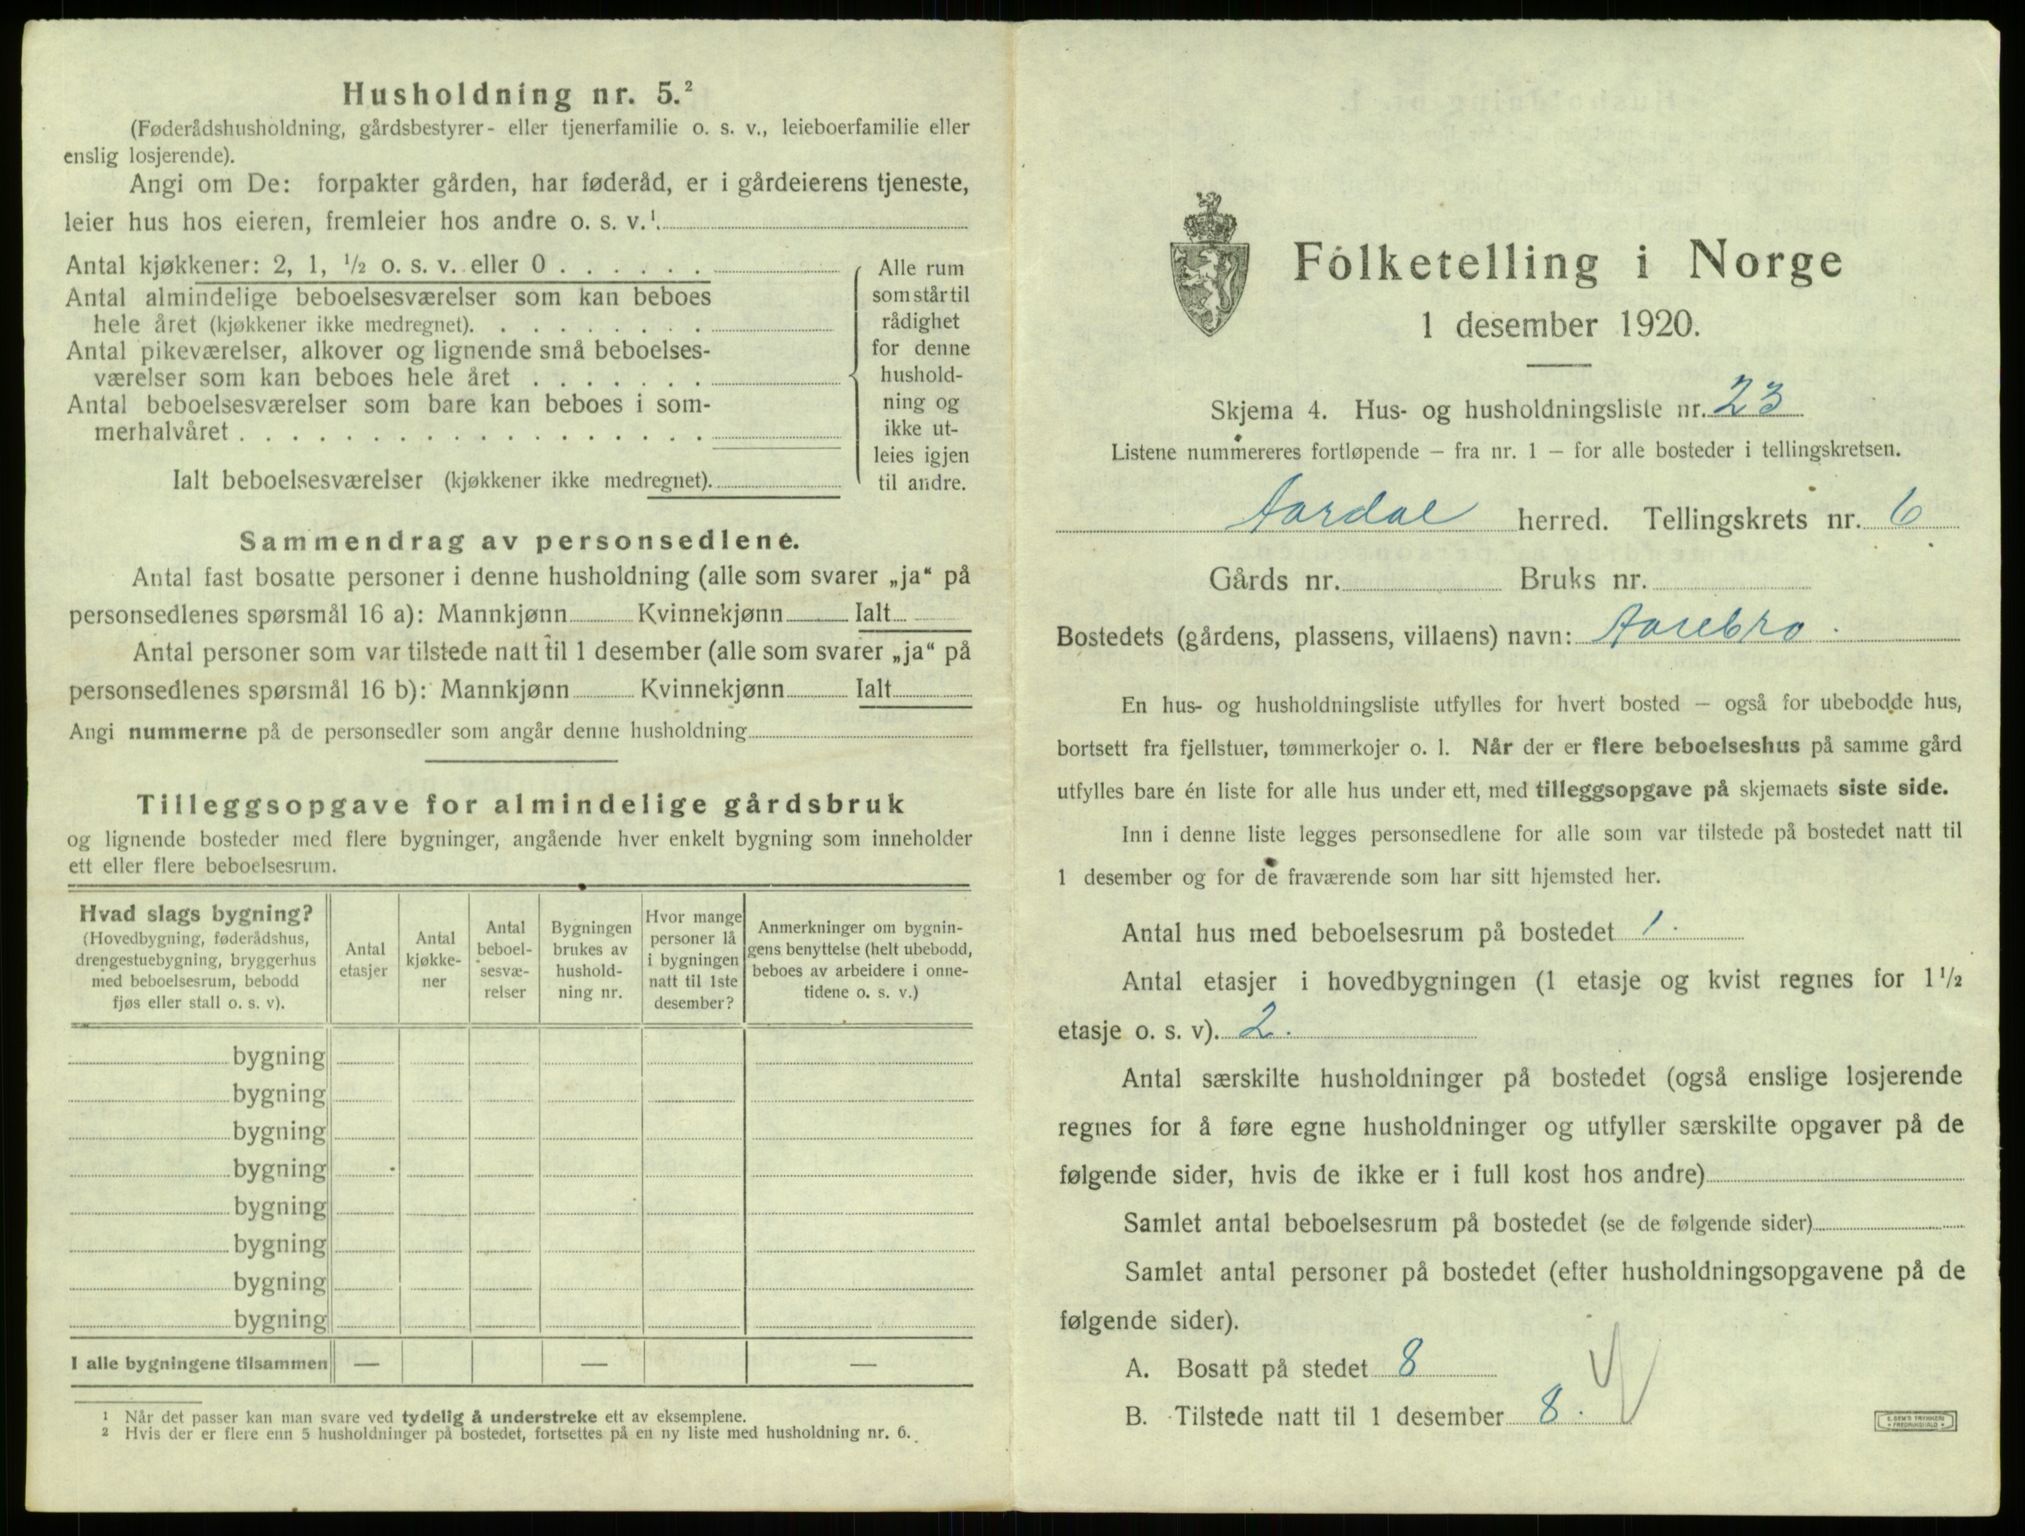 Husholdning nr. 5.²
(Føderådshusholdning, gårdsbestyrer- eller tjenerfamilie o. s. v., leieboerfamilie eller
enslig losjerende).
Angi om De: forpakter gården, har føderåd, er i gårdeierens tjeneste,
leier hus hos eieren, fremleier hos andre o. s. v.¹.
Antal kjøkkener: 2, 1, ½ o. s. v. eller 0 . . . . . .
Antal almindelige beboelsesværelser som kan beboes
hele året (kjøkkener ikke medregnet). . . . . . . . .
Antal pikeværelser, alkover og lignende små beboelses-
værelser som kan beboes hele året . . . . . . .
Antal beboelsesværelser som bare kan beboes i som-
merhalvåret . . . . . . . . . . . . . . . . . .
Ialt beboelsesværelser (kjøkkener ikke medregnet).
Alle rum
som står til
rådighet
for denne
hushold-
ning og
ikke ut-
leies igjen
til andre.
Sammendrag av personsedlene.
Antal fast bosatte personer i denne husholdning (alle som svarer „ja“ på
personsedlenes spørsmål 16 a): Mannkjønn Kvinnekjønn Ialt
Antal personer som var tilstede natt til 1 desember (alle som svarer „ja“ på
personsedlenes spørsmål 16 b): Mannkjønn Kvinnekjønn Ialt
Angi nummerne på de personsedler som angår denne husholdning
Tilleggsopgave for almindelige gårdsbruk
og lignende bosteder med flere bygninger, angående hver enkelt bygning som inneholder
ett eller flere beboelsesrum.
Hvad slags bygning?
(Hovedbygning, føderådshus,
drengestuebygning, bryggerhus
med beboelsesrum, bebodd
fjøs eller stall o. s. v).
Antal
etasjer
Antal
kjøkke-
ner
Antal
beboel-
sesvæ-
relser
Bygningen
brukes av
hushold-
ning nr.
Hvor mange
personer lå
i bygningen
natt til 1ste
desember?
Anmerkninger om bygnin-
gens benyttelse (helt ubebodd,
beboes av arbeidere i onne-
tidene o. s. v.)
bygning
bygning
bygning
bygning
bygning
bygning
bygning
bygning
I alle bygningene tilsammen — — —
¹ Når det passer kan man svare ved tydelig å understreke ett av eksemplene.
² Hvis der er flere enn 5 husholdninger på bostedet, fortsettes på en ny liste med husholdning nr. 6.
Folketelling i Norge
1 desember 1920.
Skjema 4. Hus- og husholdningsliste nr. 23
Listene nummereres fortløpende – fra nr. 1 – for alle bosteder i tellingskretsen.
Aardal herred. Tellingskrets nr. 6
Gårds nr. Bruks nr.
Bostedets (gårdens, plassens, villaens) navn: Aarebro.
En hus- og husholdningsliste utfylles for hvert bosted – også for ubebodde hus,
bortsett fra fjellstuer, tømmerkojer o. l. Når der er flere beboelseshus på samme gård
utfylles bare én liste for alle hus under ett, med tilleggsopgave på skjemaets siste side.
Inn i denne liste legges personsedlene for alle som var tilstede på bostedet natt til
1 desember og for de fraværende som har sitt hjemsted her.
Antal hus med beboelsesrum på bostedet 1.
Antal etasjer i hovedbygningen (1 etasje og kvist regnes for 1½
etasje o. s. v). 2.
Antal særskilte husholdninger på bostedet (også enslige losjerende
regnes for å føre egne husholdninger og utfyller særskilte opgaver på de
følgende sider, hvis de ikke er i full kost hos andre)
Samlet antal beboelsesrum på bostedet (se de følgende sider)
Samlet antal personer på bostedet (efter husholdningsopgavene på de
følgende sider).
A. Bosatt på stedet 8
B. Tilstede natt til 1 desember 8.